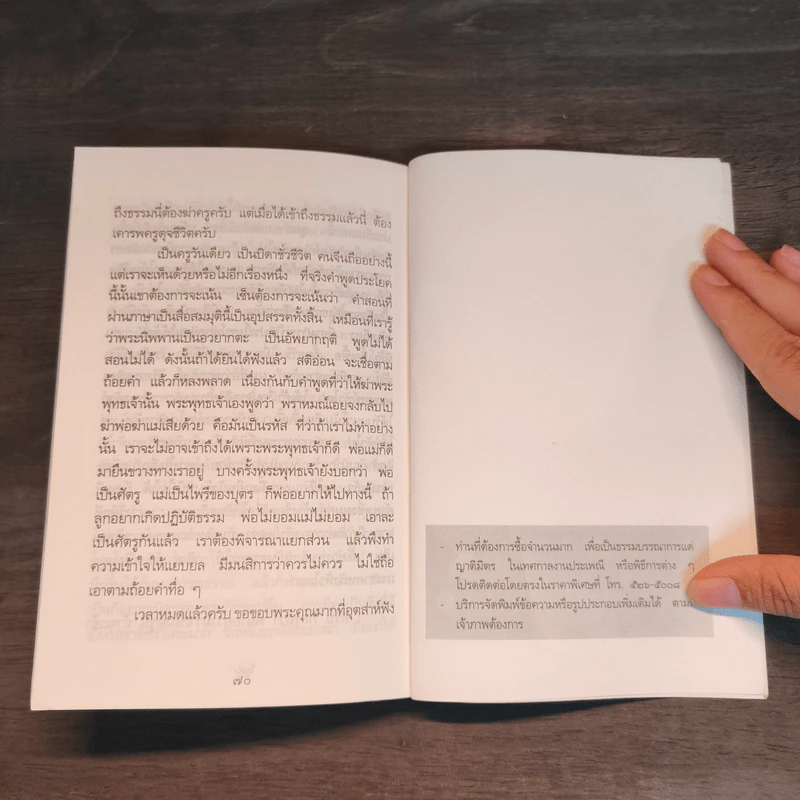 ถึงธรรมนี่ต้องฆ่าครูครับ แต่เมื่อได้เข้าถึงธรรมแล้วนี่ ต้อง
เคารพครูดุจชีวิตครับ
เป็นครูวันเดียว เป็นบิดาชั่วชีวิต คนจีนถืออย่างนี้
แต่เราจะเห็นด้วยหรือไม่อีกเรื่องหนึ่ง ที่จริงคำพูดประโยค
นี้นั้นเขาต้องการจะเน้น เซ็นต้องการจะเน้นว่า คำสอนที่
ผ่านภาษาเป็นสื่อสมมุตินี้เป็นอุปสรรคทั้งสิ้น เหมือนที่เรารู้
ว่าพระนิพพานเป็นอวยากตะ เป็นอัพยากฤติ พูดไม่ได้
สอนไม่ได้ ดังนั้นถ้าได้ยินได้ฟังแล้ว สติอ่อน จะเชื่อตาม
ถ้อยคำ แล้วก็หลงพลาด เนื่องกันกับคำพูดที่ว่าให้ฆ่าพระ
พุทธเจ้านั้น พระพุทธเจ้าเองพูดว่า พราหมณ์เอยจงกลับไป
ฆ่าพ่อฆ่าแม่เสียด้วย คือมันเป็นรหัส ที่ว่าถ้าเราไม่ทำอย่าง
นั้น เราจะไม่อาจเข้าถึงได้เพราะพระพุทธเจ้าก็ดี พ่อแม่ก็ดี
มายืนขวางทางเราอยู่ บางครั้งพระพุทธเจ้ายังบอกว่า พ่อ
เป็นศัตรู แม่เป็นไพรีของบุตร ก็พ่ออยากให้ไปทางนี้ ถ้า
ลูกอยากเกิดปฏิบัติธรรม พ่อไม่ยอมแม่ไม่ยอม เอาละ
เป็นศัตรูกันแล้ว เราต้องพิจารณาแยกส่วน แล้วพึงทำ
ความเข้าใจให้แยบยล มีมนสิการว่าควรไม่ควร ไม่ใช่ถือ
เอาตามถ้อยคำทื่อ ๆ
เวลาหมดแล้วครับ ขอขอบพระคุณมากที่อุตส่าห์ฟัง
๗๐
- ท่านที่ต้องการซื้อจำนวนมาก เพื่อเป็นธรรมบรรณาการแด่
ญาติมิตร ในเทศกาลงานประเพณี หรือพิธีการต่าง ๆ
โปรดติดต่อโดยตรงในราคาพิเศษที่ โทร. ๕๒๖-๕๐๐๘
- บริการจัดพิมพ์ข้อความหรือรูปประกอบเพิ่มเติมได้ ตามที่
เจ้าภาพต้องการ